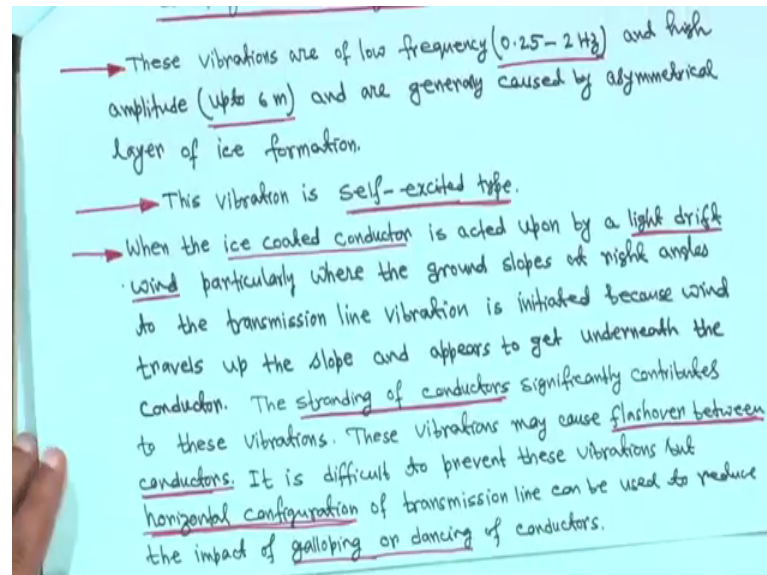 These vibrations are of low frequency (0.25-2 Hz) and high
amplitude (upto 6 m) and are generaly caused by asymmetrical
layer of ice formation.
This vibration is self-excited type.
When the ice coated conductor is acted upon by a light drift
wind particularly where the ground slopes at right angles
to the transmission line vibration is initiated because wind
travels up the slope and appears to get underneath the
conductor. The stranding of conductors significantly contributes
to these vibrations. These vibrations may cause flashover between
conductors. It is difficult to prevent these vibrations but
horizontal configuration of transmission line can be used to reduce
the impact of galloping or dancing of conductors.